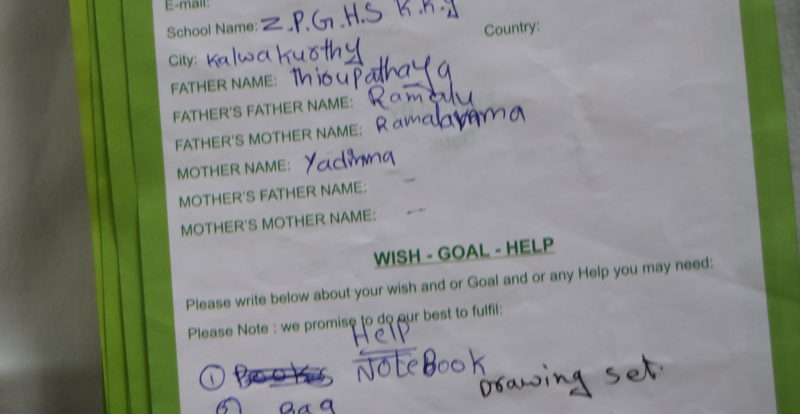 E-mail:
School Name: Z.P.G.H.S K.K.y
Country:
City: Kalwakurthy
FATHER NAME: Thioupathaya
FATHER'S FATHER NAME: Ramulu
FATHER'S MOTHER NAME: Ramalamma
MOTHER NAME: Yadmma
MOTHER'S FATHER NAME: -
MOTHER'S MOTHER NAME: --
WISH - GOAL - HELP
Please write below about your wish and or Goal and or any Help you may need:
Please Note : we promise to do our best to fulfil:
Help
① Books NoteBook Drawing set.
② Bag